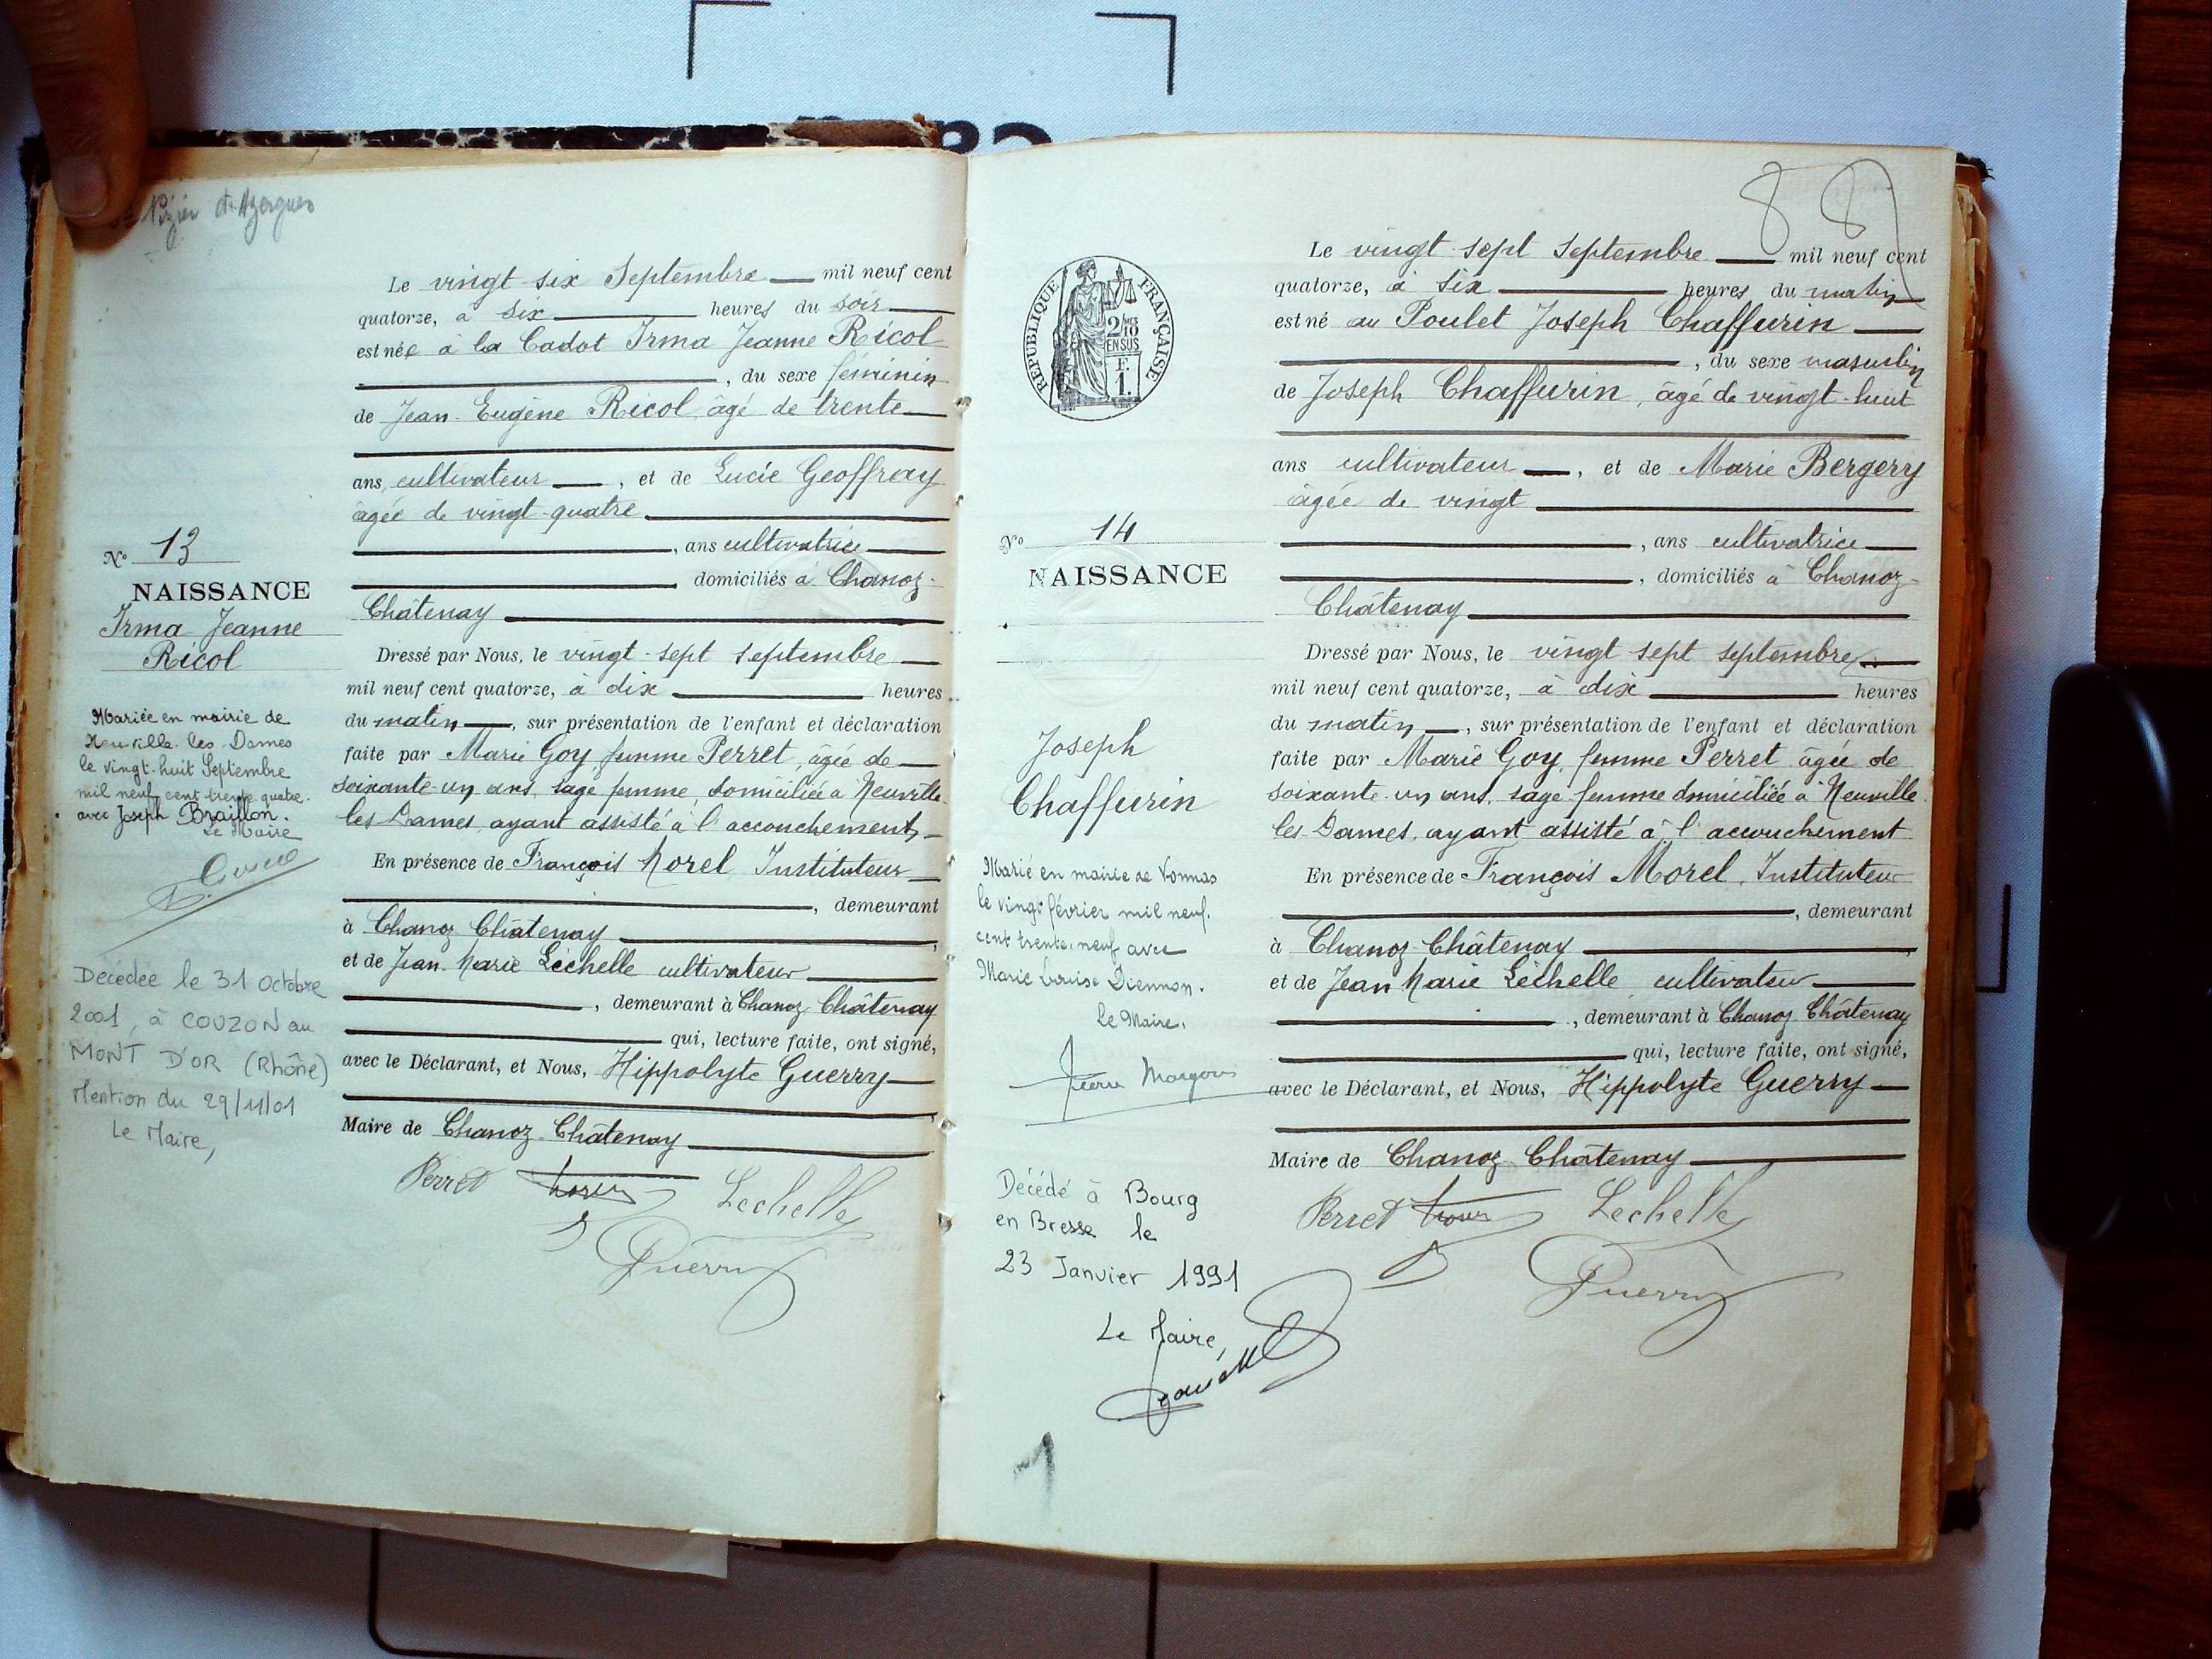 Nizier d'Azergues
Le vingt-six Septembre mil neuf cent
quatorze, à six heures du soir
est née à la Cadot Irma Jeanne Ricol
, du sexe féminin
de Jean-Eugène Ricol âgé de trente
ans, cultivateur , et de Lucie Geoffray
âgée de vingt-quatre
, ans cultivatrice
domiciliés à Chanoz-
Châtenay
Dressé par Nous, le vingt-sept septembre
mil neuf cent quatorze, à dix heures
du matin , sur présentation de l'enfant et déclaration
faite par Marie Goy femme Perret, âgée de
soixante-un ans, sage femme, domiciliée à Neuville
les Dames, ayant assisté à l'accouchement,
En présence de François Morel Instituteur
, demeurant
à Chanoz-Châtenay ,
et de Jean-Marie Lechelle cultivateur
, demeurant à Chanoz-Châtenay
qui, lecture faite, ont signé,
avec le Déclarant, et Nous, Hippolyte Guerry
,
Maire de Chanoz-Châtenay
Perret Morel Lechelle
Guerry
No 13
NAISSANCE
Irma Jeanne
Ricol
Mariée en mairie de
Neuville-les-Dames
le vingt-huit Septembre
mil neuf cent trente quatre.
avec Joseph Braillon.
Le Maire
Décédée le 31 octobre
2001, à COUZON au
MONT D'OR (Rhône)
Mention du 29/11/01
Le Maire,
88
RÉPUBLIQUE FRANÇAISE
2/10MES
EN SUS
F.
1.
Le vingt-sept septembre mil neuf cent
quatorze, à six heures du matin
est né au Poulet Joseph Chaffurin
, du sexe masculin
de Joseph Chaffurin, âgé de vingt-huit
ans cultivateur , et de Marie Bergery
âgée de vingt
, ans cultivatrice
, domiciliés à Chanoz-
Châtenay
Dressé par Nous, le vingt sept septembre
mil neuf cent quatorze, à dix heures
du matin , sur présentation de l'enfant et déclaration
faite par Marie Goy, femme Perret âgée de
soixante-un ans, sage-femme domiciliée à Neuville
les Dames, ayant assisté à l'accouchement
En présence de François Morel, Instituteur
, demeurant
à Chanoz-Châtenay ,
et de Jean Marie Léchelle cultivateur
, demeurant à Chanoz-Châtenay
qui, lecture faite, ont signé,
avec le Déclarant, et Nous, Hippolyte Guerry
Maire de Chanoz-Châtenay
Perret Morel Lechelle
Guerry
No 14
NAISSANCE
Joseph
Chaffurin
Marié en mairie de Vonnas
le vingt février mil neuf.
cent trente-neuf avec
Marie Louise Diennon.
Le Maire,
Décédé à Bourg
en Bresse le
23 Janvier 1991
Le Maire,
1